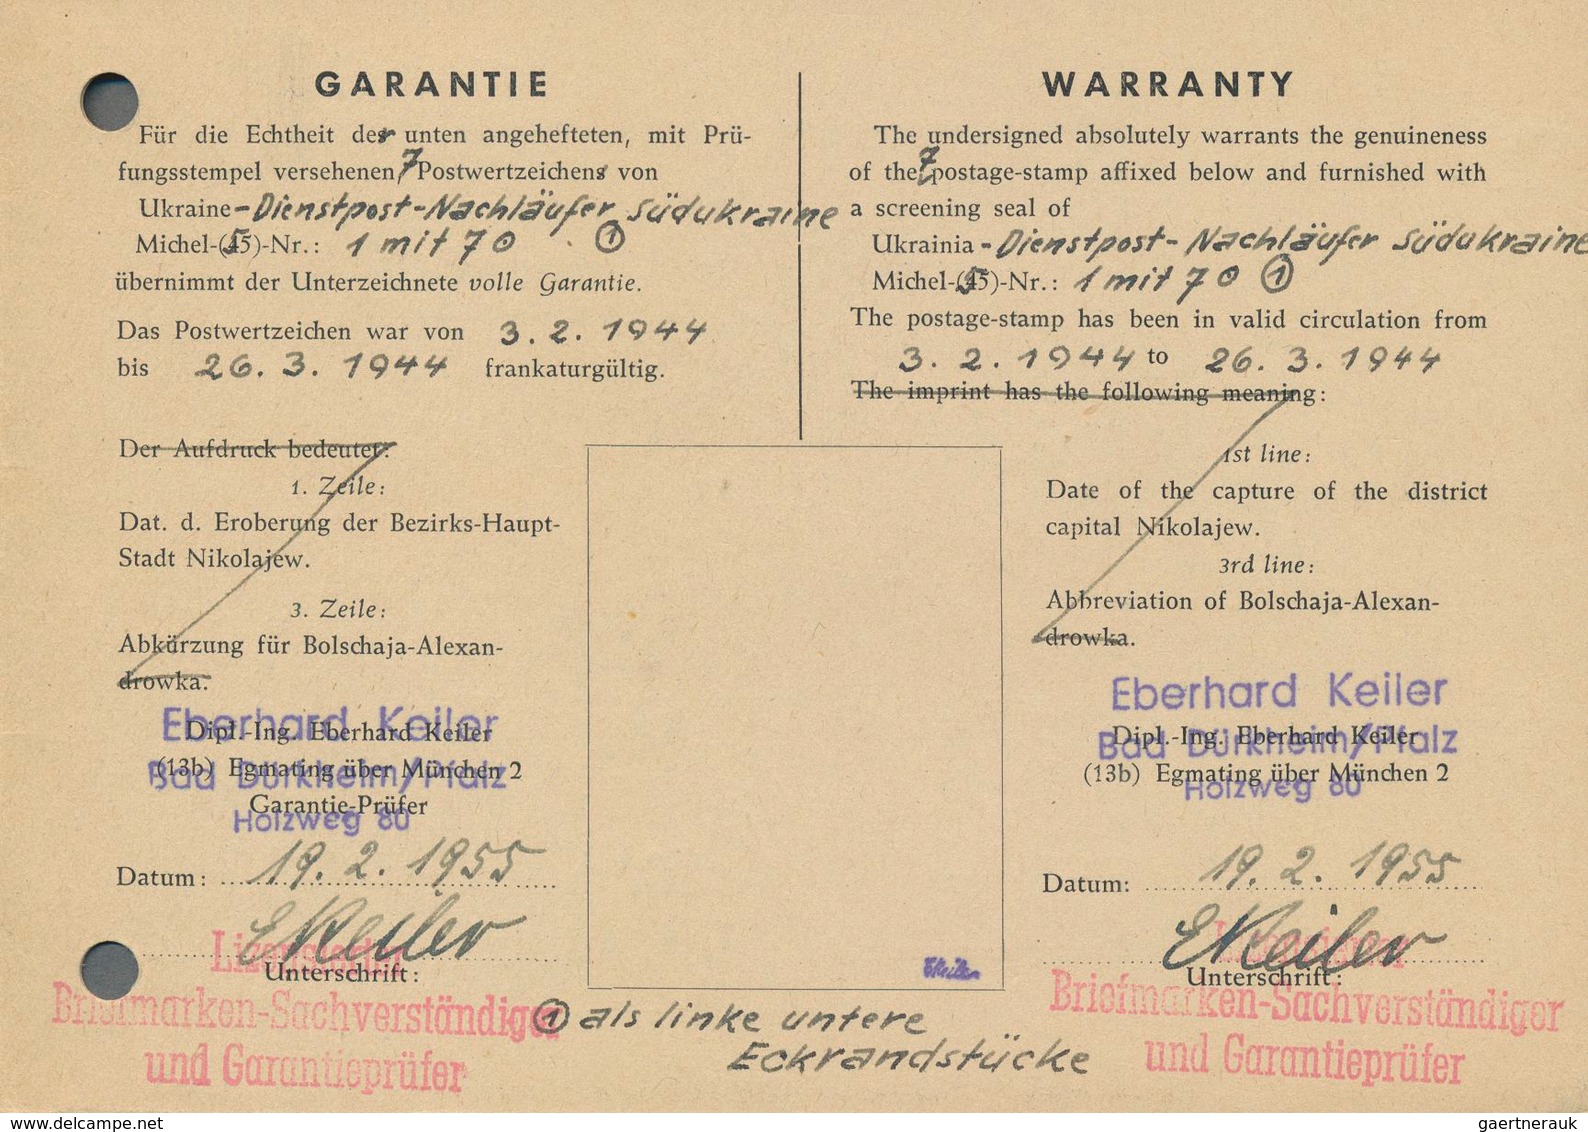 GARANTIE
Für die Echtheit der unten angehefteten, mit Prü-
fungsstempel versehenen 7 Postwertzeichens von
Ukraine-Dienstpost-Nachläufer Südukraine
Michel-(55)-Nr.: 1 mit 7 ⊙ ①
übernimmt der Unterzeichnete volle Garantie.
Das Postwertzeichen war von 3.2.1944
bis 26.3.1944 frankaturgültig.
Der Aufdruck bedeutet:
1. Zeile:
Dat. d. Eroberung der Bezirks-Haupt-
Stadt Nikolajew.
3. Zeile:
Abkürzung für Bolschaja-Alexan-
drowka.
Eberhard Keiler
Dipl.-Ing. Eberhard Keiler
Bad Dürkheim/Pfalz
(13b) Egmating über München 2
Garantie-Prüfer
Holzweg 80
Datum: 19.2.1955
EKeiler
Lizensierter
Unterschrift:
Briefmarken-Sachverständiger
und Garantieprüfer
WARRANTY
The undersigned absolutely warrants the genuineness
of the 7 postage-stamp affixed below and furnished with
a screening seal of
Ukrainia-Dienstpost-Nachläufer Südukraine
Michel-(55)-Nr.: 1 mit 7 ⊙ ①
The postage-stamp has been in valid circulation from
3.2.1944 to 26.3.1944
The imprint has the following meaning:
1st line:
Date of the capture of the district
capital Nikolajew.
3rd line:
Abbreviation of Bolschaja-Alexan-
drowka.
Eberhard Keiler
Dipl.-Ing. Eberhard Keiler
Bad Dürkheim/Pfalz
(13b) Egmating über München 2
Holzweg 80
Datum: 19.2.1955
EKeiler
Lizensierter
Unterschrift:
Briefmarken-Sachverständiger
und Garantieprüfer
EKeiler
① als linke untere
Eckrandstücke
www.delcampe.net
gaertnerauk